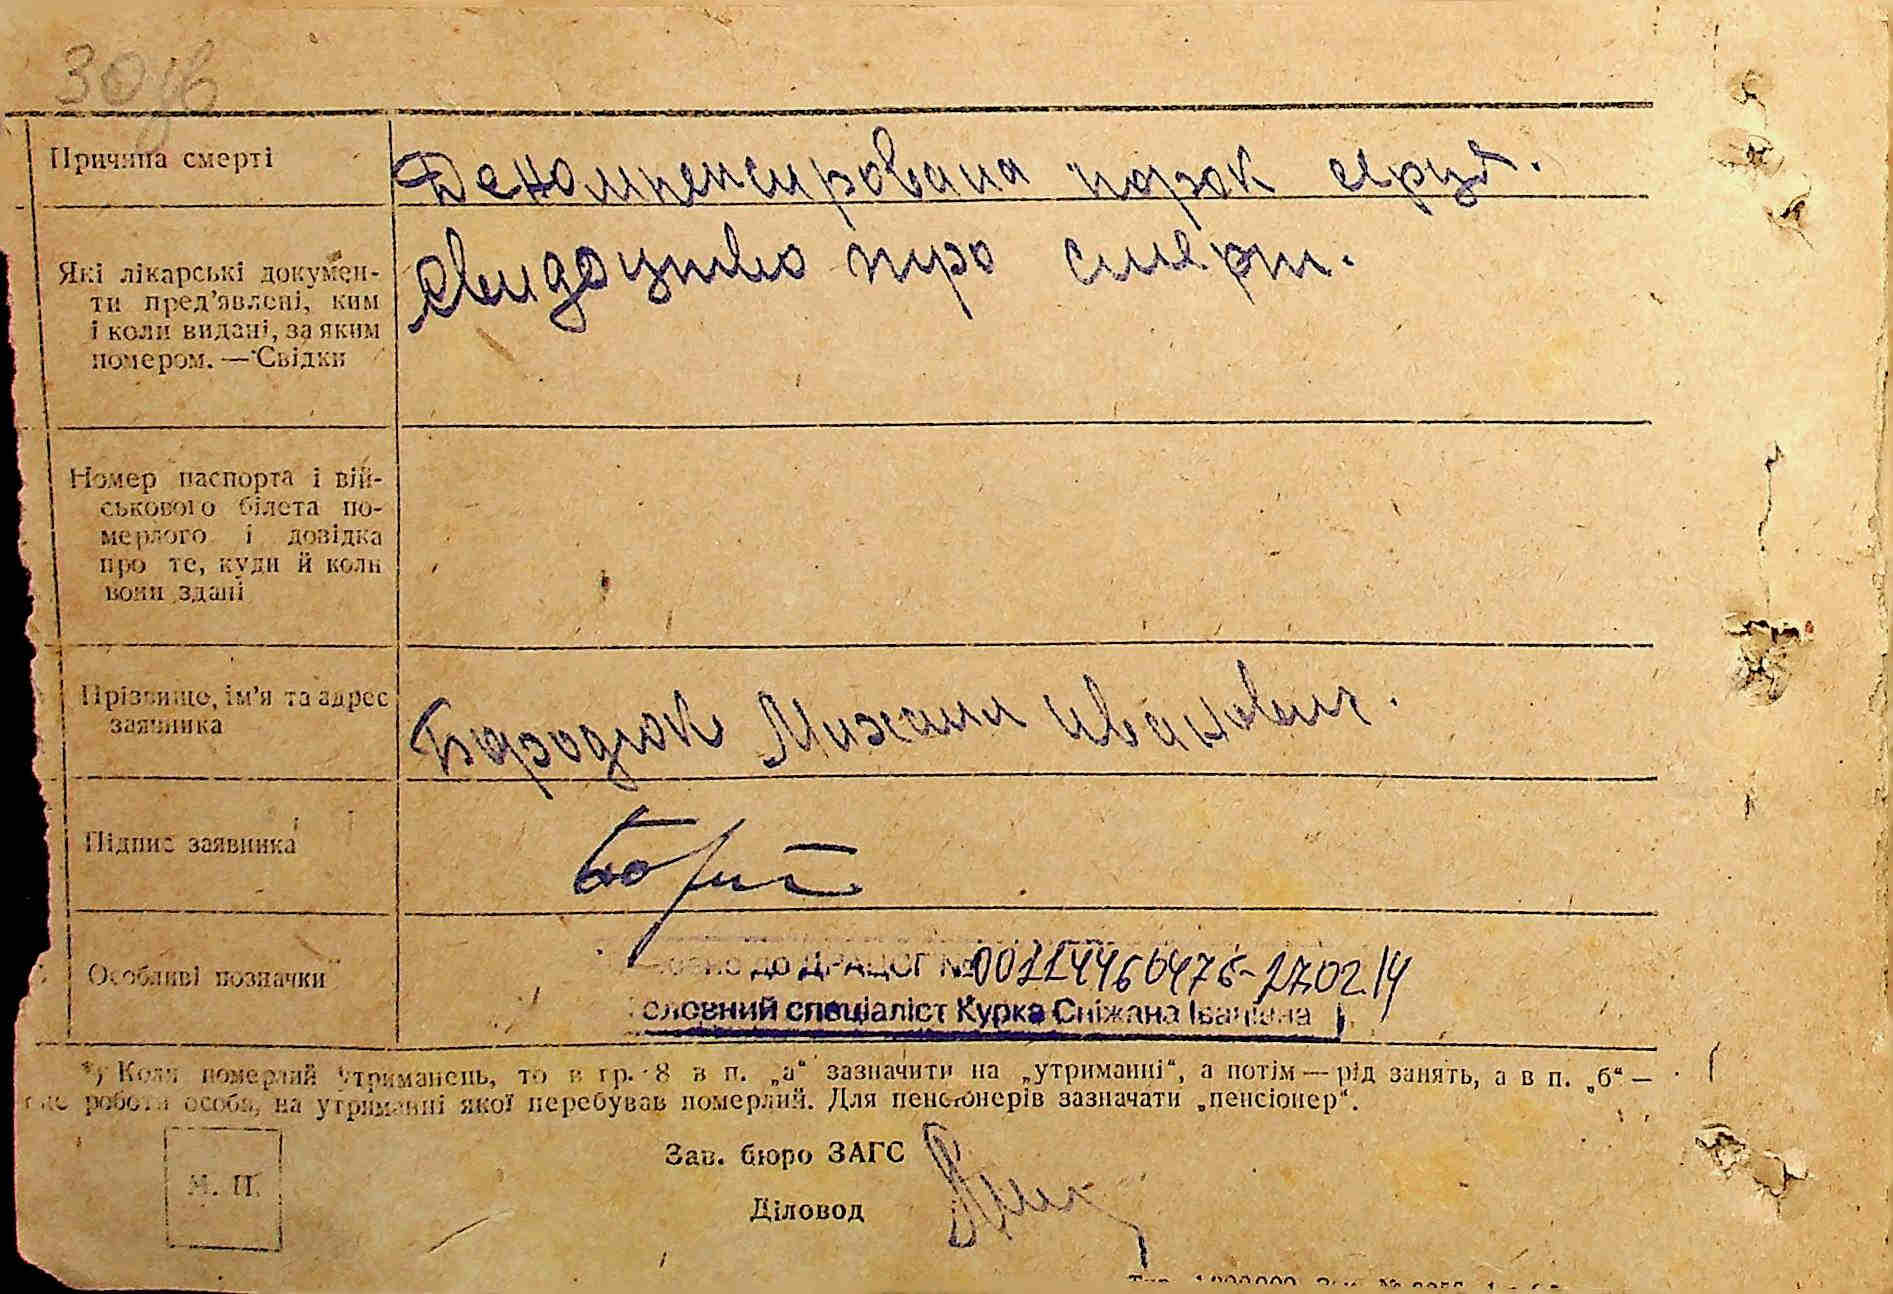 30
Причина смерті
Декомпенсирована порок серця.
Які лікарські документи пред'явлені, ким
і коли видані, за яким
номером. — Свідки
Свидоцтво про смерть.
Номер паспорта і вій-
ськового білета по-
мерлого і довідка
про те, куди й коли
вони здані
Прізвище, ім'я та адрес
заявника
Бородюк Михаил Иванович.
Підпис заявника
Особливі позначки
до ДРАЦСГ №00114460476-27.02.14
Головний спеціаліст Курка Сніжана Іванівна
*) Коли померлий утриманець, то в гр. 8 в п. „а“ зазначити на „утриманні“, а потім — рід занять, а в п. „б“ —
роботи особи, на утриманні якої перебував померлий. Для пенсіонерів зазначати „пенсіонер“.
М. П.
Зав. бюро ЗАГС
Діловод